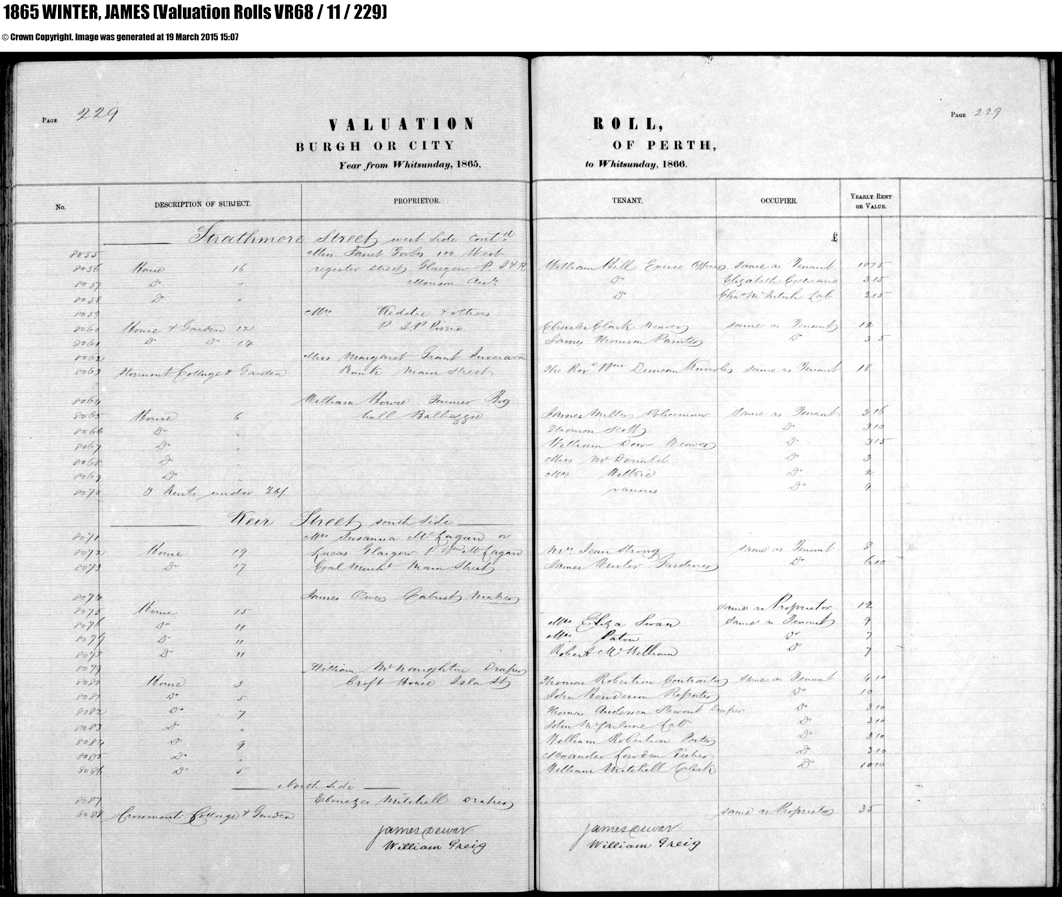 1865 WINTER, JAMES (Valuation Rolls VR68 / 11 / 229)
© Crown Copyright. Image was generated at 19 March 2015 15:07
PAGE 229
VALUATION ROLL,
BURGH OR CITY OF PERTH,
Year from Whitsunday, 1865, to Whitsunday, 1866.
PAGE 229
No. DESCRIPTION OF SUBJECT. PROPRIETOR. TENANT. OCCUPIER. YEARLY RENT OR VALUE.
£
Strathmore Street, west Side Contd
8055 Miss Janet Forbes 100 West
8056 House 16 register street Glasgow P. William Hill Excise Officer same as Tenant 10 15
8057 Do " Do Elizabeth 3 15
8058 Do " Do 2 15
8059 Mrs Keddie & others
8060 House & Garden 12 P Charles Clark Weaver same as Tenant 12
8061 Do Do 14 James Thomson Painter Do 3 5
8062 Miss Margaret Grant
8063 Stormont Cottage & Garden Bank Main Street The Revd Wm Duncan Knowles same as Tenant 18
8064 William Howie Farmer
8065 House 6 James Miller Policeman same as Tenant 3 16
8066 Do " Thomas Scott Do 3 10
8067 Do " William Dow Weaver Do 3 15
8068 Do Miss McDonald Do 3
8069 Do Mrs Wilkie Do 2
8070 3 Rents under various Do 4
Keir Street, south Side
8071 Mrs Susanna McLagan or
8072 House 19 Lucas Glasgow P Wm McLagan Mrs Jean Strong same as Tenant 8
8073 Do 17 Coal Mercht Main Street James Winter Gardener Do 6 10
8074 James Cabinet Maker
8075 House 15 same as Proprietor 12
8076 Do 11 Mrs Eliza Swan same as Tenant 9
8077 Do 11 Mrs Paton Do 7
8078 Do 11 Robert McWilliam Do 7
8079 William McNaughton Draper
8080 House 3 Croft House Isla St Thomas Robertson Contractor same as Tenant 4 10
8081 Do 5 John Henderson Reporter Do 10
8082 Do 7 Thomas Anderson Stewart Draper Do 3 10
8083 Do " John McFarlane Do 3 10
8084 Do 9 William Robertson Porter Do 3 10
8085 Do " Alexander Lowden Do 3 10
8086 Do 5 William Mitchell Clerk Do 10 10
North Side
8087 Ebenezer Mitchell Draper
8088 Crossmount Cottage & Garden same as Proprietor 35
James Dewar James Dewar
William Greig William Greig